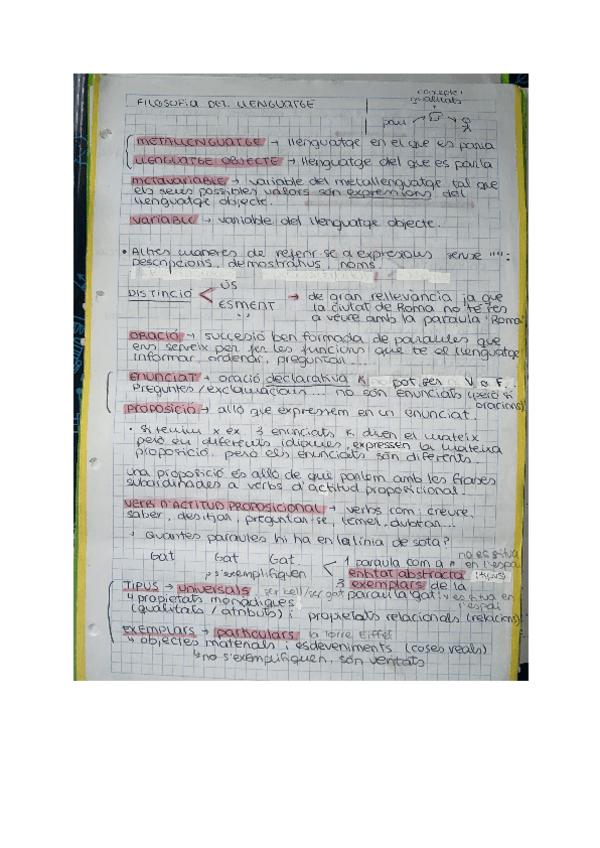 FILOSOFIA DEL LLENGUATGE
qualitats
METALLENGUATGE → llenguatge en el que es parla
LLENGUATGE OBJECTE → llenguatge del que es parla
METAVARIABLE → variable del metallenguatge tal que
els seus possibles valors són expressions del
llenguatge objecte.
VARIABLE → variable del llenguatge objecte.
• Altres maneres de referir-se a expressions sense "":
Descripcions, demostratius, noms
ÚS
DISTINCIÓ
ESMENT
→ de gran rellevància ja que
la ciutat de Roma no té res
a veure amb la paraula 'Roma'
ORACIÓ → successió ben formada de paraules que
ens serveix per fer les funcions que té el llenguatge
informar, ordenar, preguntar...
ENUNCIAT → oració declarativa k pot ser V o F.
Preguntes/exclamacions... no són enunciats (però sí
oracions)
PROPOSICIÓ → allò que expressem en un enunciat.
• Si tenim x ex. 3 enunciats k diuen el mateix
però en diferents idiomes, expressen la mateixa
proposició, però els enunciats són diferents.
Una proposició és allò de què parlem amb les frases
subordinades a verbs d'actitud proposicional.
VERB D'ACTITUD PROPOSICIONAL → verbs com: creure,
saber, desitjar, preguntar-se, témer, dubtar...
Quantes paraules hi ha en la línia de sota?
Gat Gat Gat
1 paraula com a
no es situa
en l'espai
entitat abstracta (tipus)
s'exemplifiquen
3 exemplars de la
paraula 'gat'
TIPUS → universals ser bell/ser gat
propietats monàdiques
(qualitats / atributs) i propietats relacionals (relacions)
EXEMPLARS → particulars la Torre Eiffel
objectes materials i esdeveniments (coses reals)
↳ no s'exemplifiquen, són